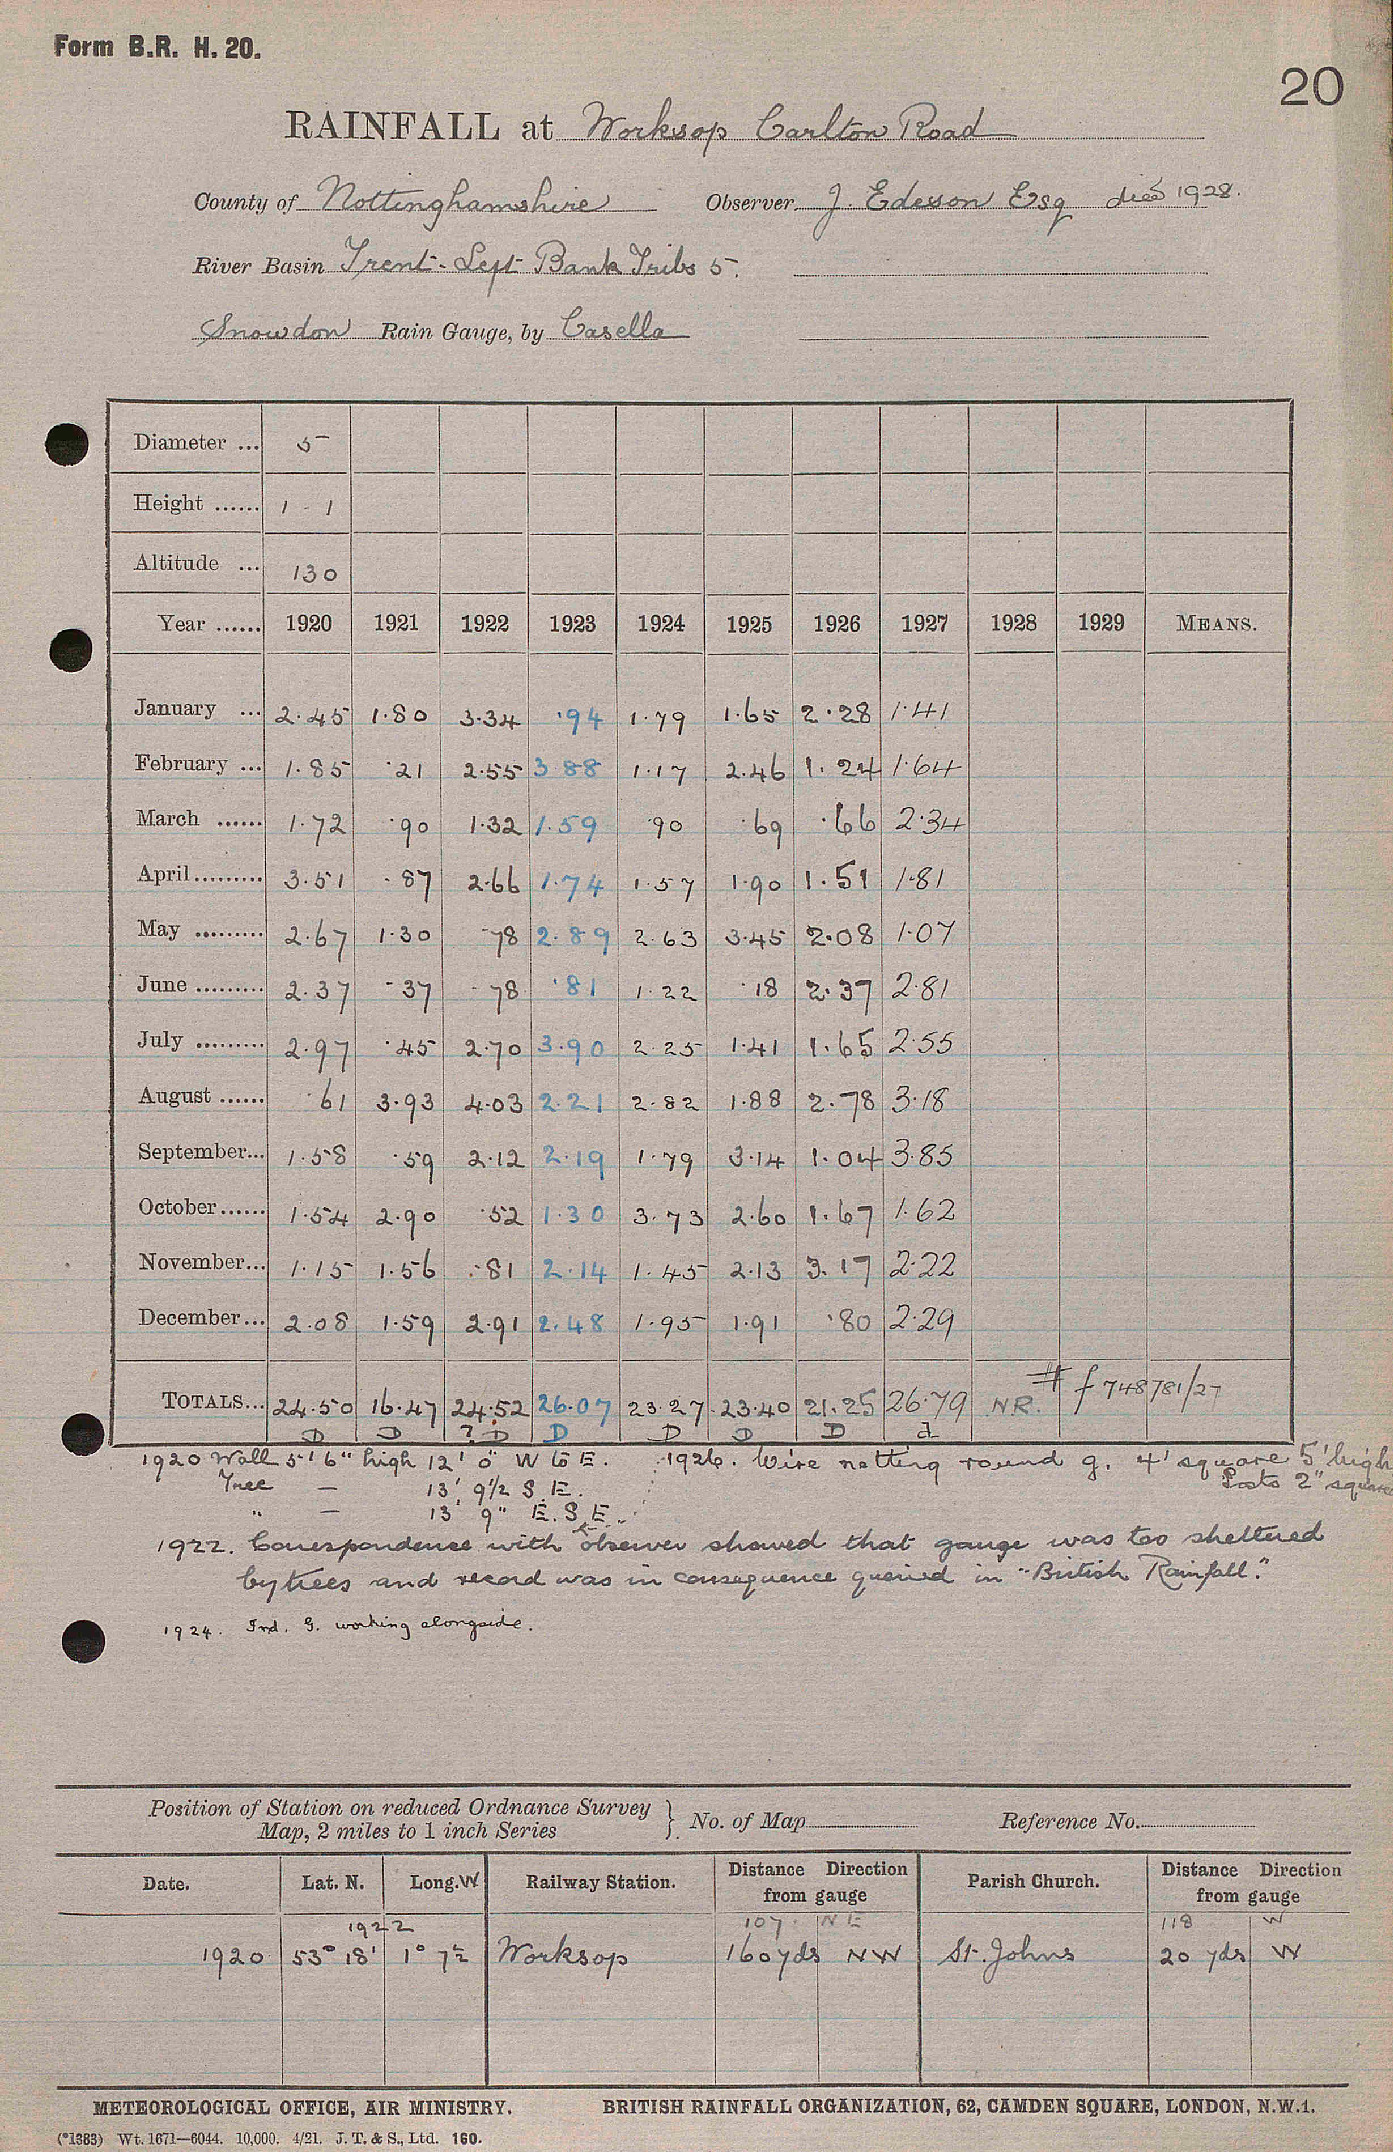 Form B.R. H. 20.
20
RAINFALL at Worksop Carlton Road
County of Nottinghamshire Observer J. Edesson Esq died 1928.
River Basin Trent - Left Bank Tribs 5.
Snowdon Rain Gauge, by Casella
Diameter ... 5
Height ...... 1 - 1
Altitude ... 130
Year ...... 1920 1921 1922 1923 1924 1925 1926 1927 1928 1929 MEANS.
January ... 2.45 1.80 3.34 .94 1.79 1.65 2.28 1.41
February ... 1.85 .21 2.55 3 88 1.17 2.46 1.24 1.64
March ...... 1.72 .90 1.32 1.59 .90 .69 .66 2.34
April......... 3.51 .87 2.66 1.74 1.57 1.90 1.51 1.81
May ......... 2.67 1.30 .78 2.89 2.63 3.45 2.08 1.07
June ......... 2.37 .37 .78 .81 1.22 .18 2.37 2.81
July ......... 2.97 .45 2.70 3.90 2.25 1.41 1.65 2.55
August ...... .61 3.93 4.03 2.21 2.82 1.88 2.78 3.18
September... 1.58 .59 2.12 2.19 1.79 3.14 1.04 3.85
October...... 1.54 2.90 .52 1.30 3.73 2.60 1.67 1.62
November... 1.15 1.56 .81 2.14 1.45 2.13 3.17 2.22
December... 2.08 1.59 2.91 2.48 1.95 1.91 .80 2.29
TOTALS... 24.50 16.47 24.52 26.07 23.27 23.40 21.25 26.79 NR. # f 748781/27
D D ? D D D D D d
1920 Wall 5' 6" high 12' 0" W to E. 1926. Wire netting round g. 4' square 5' high
Tree — 13' 9½ S.E. Posts 2" square
" — 13' 9" E.S.E.
1922. Correspondence with observer showed that gauge was too sheltered
by trees and record was in consequence queried in "British Rainfall."
1924. Ind. G. working alongside.
Position of Station on reduced Ordnance Survey
Map, 2 miles to 1 inch Series } No. of Map Reference No.
Date. Lat. N. Long. W Railway Station. Distance Direction from gauge Parish Church. Distance Direction from gauge
1922 107 NE 118 W
1920 53° 18' 1° 7½ Worksop 160 yds NW St. Johns 20 yds W
METEOROLOGICAL OFFICE, AIR MINISTRY. BRITISH RAINFALL ORGANIZATION, 62, CAMDEN SQUARE, LONDON, N.W.1.
(*1383) Wt. 1671—6044. 10,000. 4/21. J. T. & S., Ltd. 160.